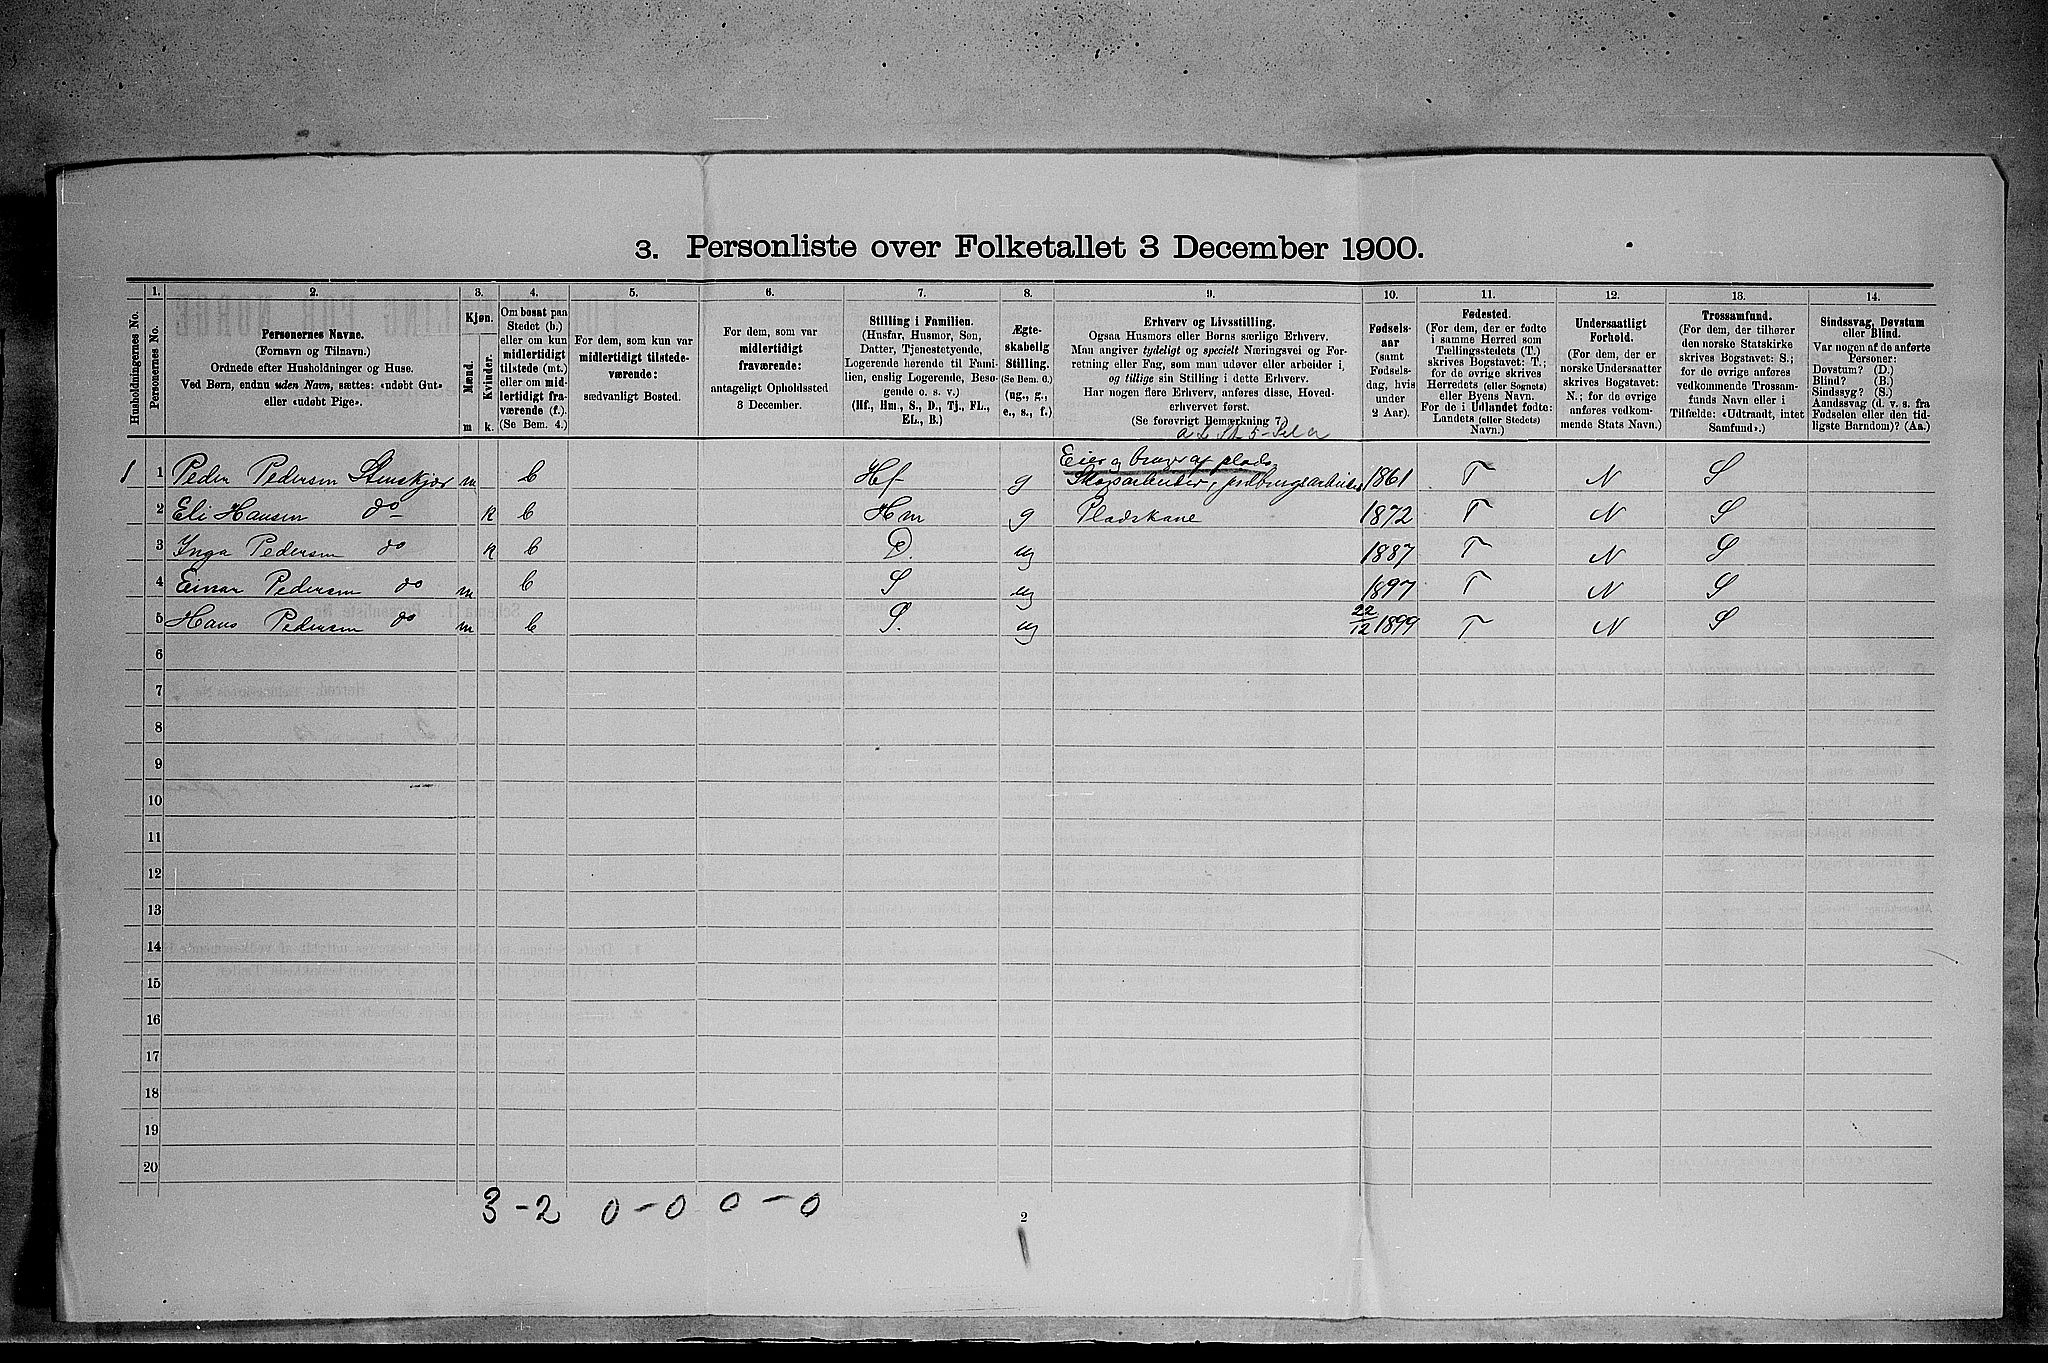 3. Personliste over Folketallet 3 December 1900.
1. 2. 3. 4. 5. 6. 7. 8. 9. 10. 11. 12. 13. 14.
Husholdningernes No.
Personernes No.
Personernes Navne.
(Fornavn og Tilnavn.)
Ordnede efter Husholdninger og Huse.
Ved Børn, endnu uden Navn, sættes: «udøbt Gut»
eller «udøbt Pige».
Kjøn.
Mænd.
Kvinder.
m k.
Om bosat paa
Stedet (b.)
eller om kun
midlertidigt
tilstede (mt.)
eller om mid-
lertidigt fra-
værende (f.).
(Se Bem. 4.)
For dem, som kun var
midlertidigt tilstede-
værende:
sædvanligt Bosted.
For dem, som var
midlertidigt
fraværende:
antageligt Opholdssted
3 December.
Stilling i Familien.
(Husfar, Husmor, Søn,
Datter, Tjenestetyende,
Logerende hørende til Fami-
lien, enslig Logerende, Besø-
gende o. s. v.)
(Hf., Hm., S., D., Tj., FL.,
EL., B.)
Ægte-
skabelig
Stilling.
(Se Bem. 6.)
(ug., g.,
e., s., f.)
Erhverv og Livsstilling.
Ogsaa Husmors eller Børns særlige Erhverv.
Man angiver tydeligt og specielt Næringsvei og For-
retning eller Fag, som man udøver eller arbeider i,
og tillige sin Stilling i dette Erhverv.
Har nogen flere Erhverv, anføres disse, Hoved-
erhvervet først.
(Se forøvrigt Bemærkning 7.)
Fødsels-
aar
(samt
Fødsels-
dag, hvis
under
2 Aar).
Fødested.
(For dem, der er fødte
i samme Herred som
Tællingsstedets (T.)
skrives Bogstavet: T.;
for de øvrige skrives
Herredets (eller Sognets)
eller Byens Navn.
For de i Udlandet fødte:
Landets (eller Stedets)
Navn.)
Undersaatligt
Forhold.
(For dem, der er
norske Undersaatter
skrives Bogstavet:
N.; for de øvrige
anføres vedkom-
mende Stats Navn.)
Trossamfund.
(For dem, der tilhører
den norske Statskirke
skrives Bogstavet: S.;
for de øvrige anføres
vedkommende Trossam-
funds Navn eller i
Tilfælde: «Udtraadt, intet
Samfund».)
Sindssvag, Døvstum
eller Blind.
Var nogen af de anførte
Personer:
Døvstum? (D.)
Blind? (B.)
Sindssyg? (S.)
Aandssvag (d. v. s. fra
Fødselen eller den tid-
ligste Barndom)? (Aa.)
Eier og bruger af plads
1 1 Peder Pedersen Stenskjær m b Hf g Skogsarbeider, jordbrugsarbeider 1861 T N S
2 Eli Hansen do k b Hm g Pladskone 1872 T N S
3 Inga Pedersen do k b D. ug 1887 T N S
4 Einar Pedersen do m b S ug 1897 T N S
5 Hans Pedersen do m b S. ug 22/12 1899 T N S
6
7
8
9
10
11
12
13
14
15
16
17
18
19
20
3 - 2 0 - 0 0 - 0
2